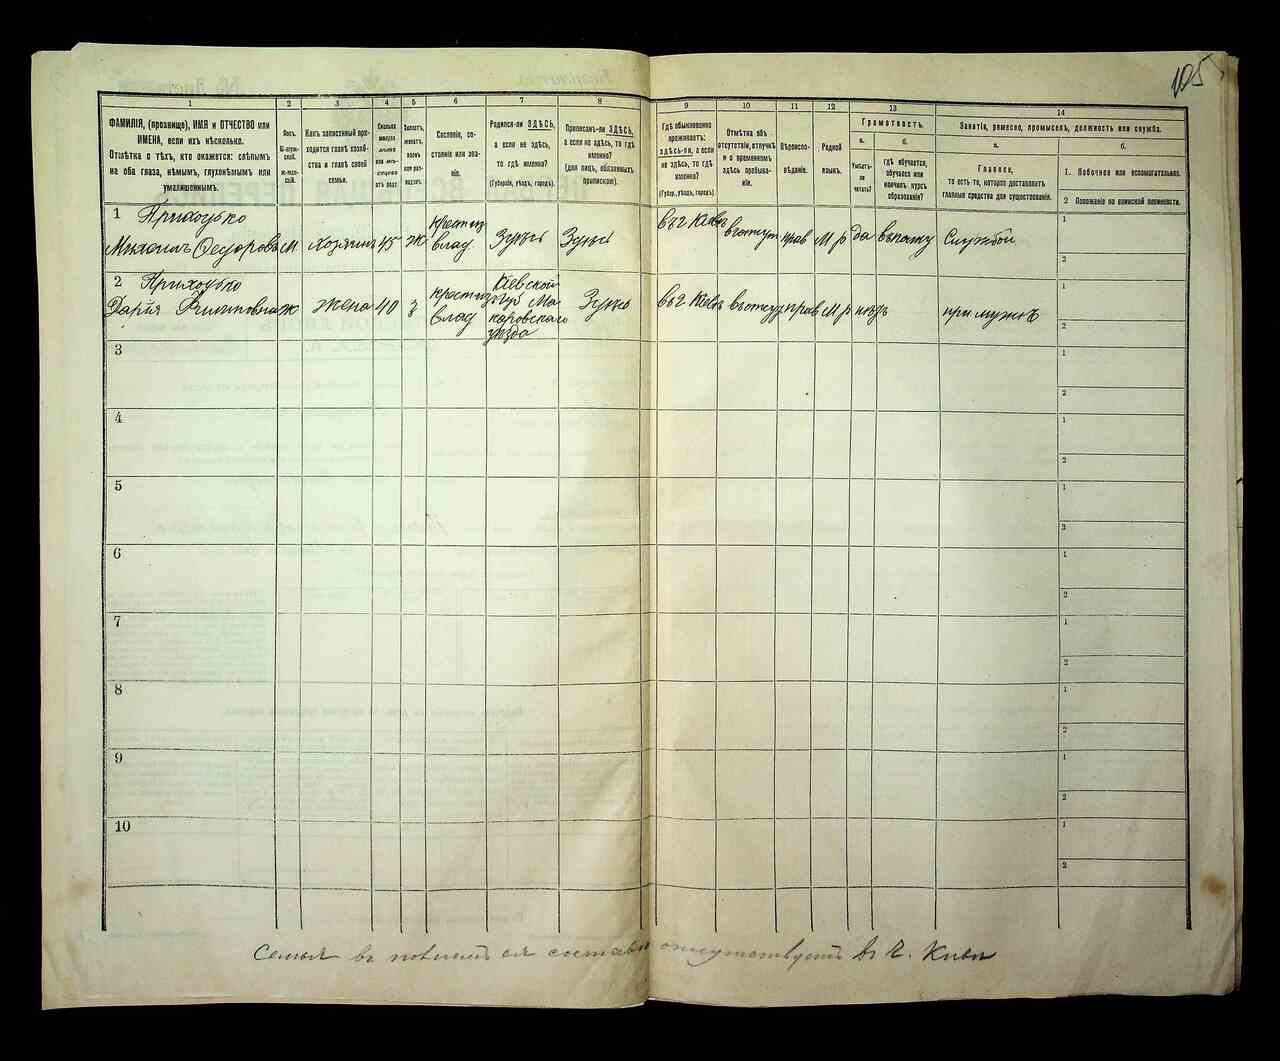 105
1 2 3 4 5 6 7 8 9 10 11 12 13 14
ФАМИЛІЯ, (прозвище), ИМЯ и ОТЧЕСТВО или
ИМЕНА, если ихъ нѣсколько.
Отмѣтка о тѣхъ, кто окажется: слѣпымъ
на оба глаза, нѣмымъ, глухонѣмымъ или
умалишеннымъ.
Полъ.
М-муж-
ской.
Ж-жен-
скій.
Какъ записанный при-
ходится главѣ хозяй-
ства и главѣ своей
семьи.
Сколько
минуло
лѣтъ
или мѣ-
сяцевъ
отъ роду
Холостъ,
женатъ,
вдовъ
или раз-
веденъ
Сословіе, со-
стояніе или зва-
ніе.
Родился-ли ЗДѢСЬ,
а если не здѣсь,
то гдѣ именно?
(Губернія, уѣздъ, городъ).
Приписанъ-ли ЗДѢСЬ,
а если не здѣсь, то гдѣ
именно?
(для лицъ, обязанныхъ
припискою).
Гдѣ обыкновенно
проживаетъ:
здѣсь-ли, а если
не здѣсь, то гдѣ
именно?
(Губер., уѣздъ, городъ)
Отмѣтка объ
отсутствіи, отлучкѣ
и о временномъ
здѣсь пребыва-
ніи.
Вѣроиспо-
вѣданіе.
Родной
языкъ.
Грамотность.
а.
Умѣетъ-
ли
читать?
б.
гдѣ обучается,
обучался или
кончилъ курсъ
образованія?
Занятія, ремесло, промыселъ, должность или служба.
а.
Главное,
то есть то, которое доставляетъ
главныя средства для существованія.
б.
1. Побочное или вспомогательное.
2 Положеніе по воинской повинности.
1 Приходько
Михаилъ Федоровъ М Хозяинъ 45 ж крестиз влад Здѣсь Здѣсь въ г Кіевъ в отсут прав М р да въ полку Службой
1
2
2 Приходько
Дарія Филиповна ж жена 40 з крестиз влад Кіевской губ Макаровскаго уѣзда Здѣсь въ г Кіевъ в отсут прав М р нѣтъ при мужѣ
1
2
3
1
2
4
1
2
5
1
2
6
1
2
7
1
2
8
1
2
9
1
2
10
1
2
Семья въ полномъ ея составѣ отсутствуетъ въ г. Кіевѣ